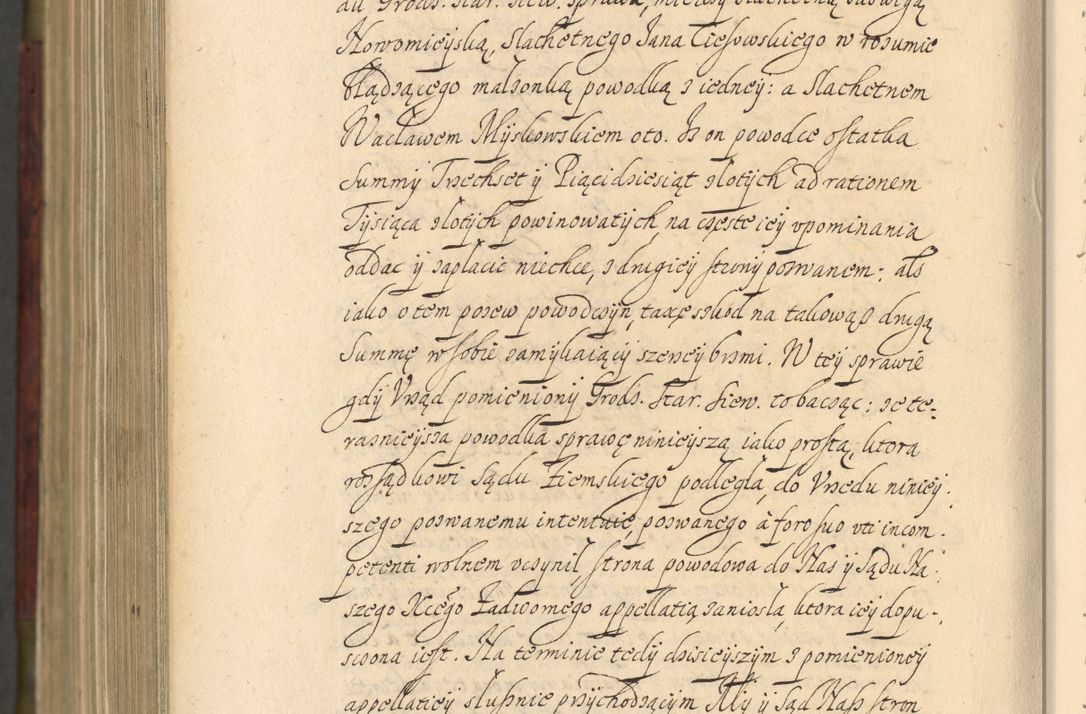 du Grods. Star. Siew. sprawa, miedzy Slachetną Jadwigą
Nowomieyską, Slachetnego Jana Ciesowskiego w rozumie
błądzącego malzonką powodką z iedney: a Slachetnem
Wacławem Myskowskiem oto. Iz on powodce ostatka
Summy Trzechset y Piącidziesiąt zlotych ad rationem
Tysiąca zlotych powinowatych, na częste iey vpominania
oddac y zaplacic niechce, z drugiey strony pozwanem: als
iako o tem pozew powodczyn, taxę szkod na takowąß drugą
Summę w sobie zamykaiący szerzey brzmi. W tey sprawie
gdy Vrząd pomieniony Grods. Star. Siew. to bacząc: ze te-
raznieysza powodka sprawę ninieyszą iako prostą, ktora
rozsądkowi Sądu Ziemskiego podległa, do Vrzedu niniey-
szego pozwanemu intentuie, pozwanego à foro suo vti incom-
petenti wolnem vczynil, strona powodowa do Nas y Sądu Na-
szego Xcego Zadwornego appellatią zaniosla, ktora iey dopu-
sczona iest. Na terminie tedy dzisieyszym z pomienioney
appellatiey slusznie przychodzącym My y Sąd Nasz stron